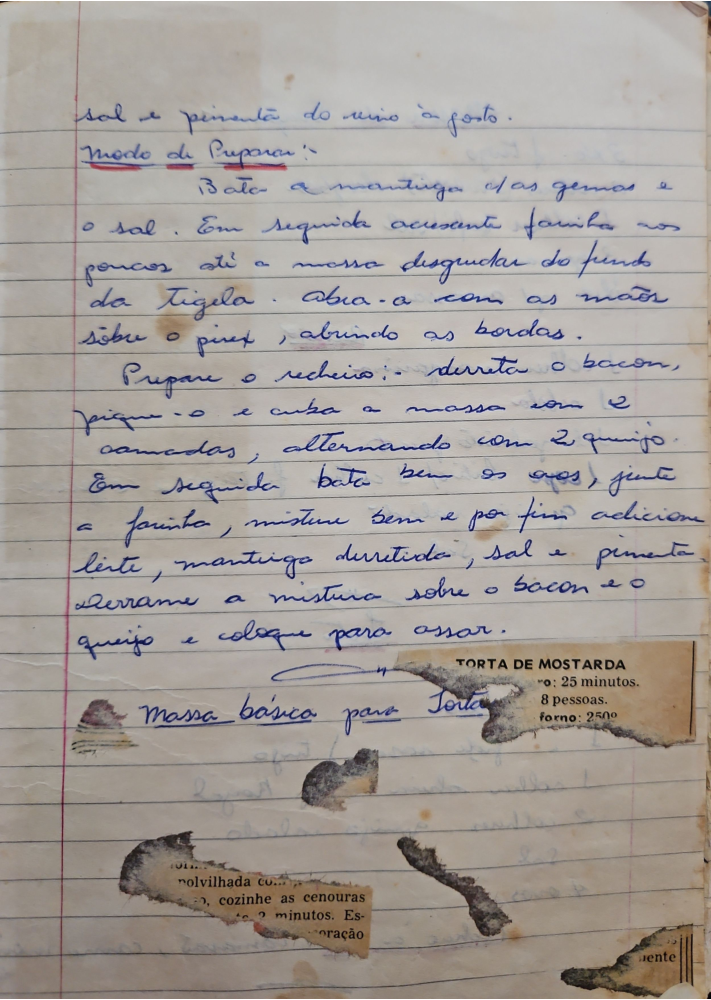 sal e pimenta do reino à gosto.
Modo de Preparar:-
Bata a manteiga c/as gemas e
o sal. Em seguida acrescente farinha aos
poucos até a massa desgrudar do fundo
da tigela. Abra-a com as mãos
sôbre o pirex, abrindo as bordas.
Prepare o recheio:- derreta o bacon,
pique-o e cubra a massa com 2
camadas, alternando com 2 queijo.
Em seguida bata bem os ovos, junte
a farinha, misture bem e por fim adicione
leite, manteiga derretida, sal e pimenta.
Derrame a mistura sobre o bacon e o
queijo e coloque para assar.
TORTA DE MOSTARDA
ro: 25 minutos.
8 pessoas.
forno: 250º
Massa básica para Torta
polvilhada
cozinhe as cenouras
2 minutos. Es-
oração
mente